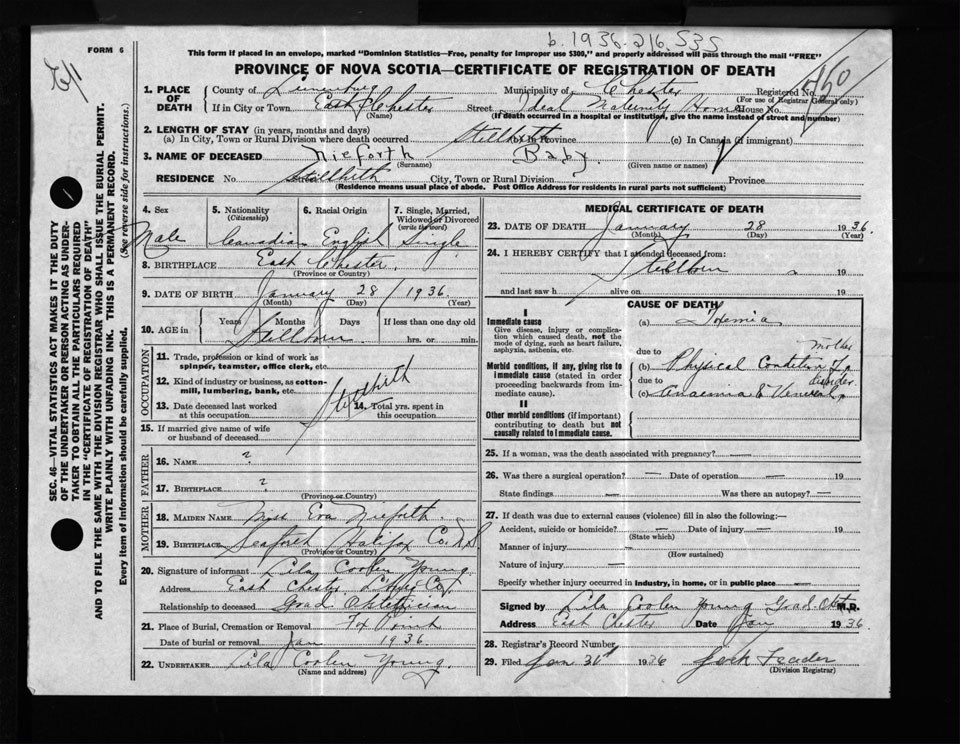 b. 1936-216535
FORM 6
This form if placed in an envelope, marked "Dominion Statistics—Free, penalty for improper use $300," and properly addressed will pass through the mail "FREE"
PROVINCE OF NOVA SCOTIA—CERTIFICATE OF REGISTRATION OF DEATH
1. PLACE OF DEATH County of Lunenburg Municipality of Chester Registered No.
(For use of Registrar General only)
If in City or Town East Chester Street Ideal Maternity Home House No.
(Name) (If death occurred in a hospital or institution, give the name instead of street and number)
2. LENGTH OF STAY (in years, months and days)
(a) In City, Town or Rural Division where death occurred Stillbirth (b) In Province (c) In Canada (if immigrant)
3. NAME OF DECEASED Nieforth Baby.
(Surname) (Given name or names)
RESIDENCE No. Stillbirth Street City, Town or Rural Division Province
(Residence means usual place of abode. Post Office Address for residents in rural parts not sufficient)
SEC. 46—VITAL STATISTICS ACT MAKES IT THE DUTY
OF THE UNDERTAKER OR PERSON ACTING AS UNDER-
TAKER TO OBTAIN ALL THE PARTICULARS REQUIRED
IN THE "CERTIFICATE OF REGISTRATION OF DEATH"
AND TO FILE THE SAME WITH THE DIVISION REGISTRAR WHO SHALL ISSUE THE BURIAL PERMIT.
WRITE PLAINLY WITH UNFADING INK. THIS IS A PERMANENT RECORD.
Every item of information should be carefully supplied. (See reverse side for instructions.)
4. Sex 5. Nationality (Citizenship) 6. Racial Origin 7. Single, Married, Widowed or Divorced (write the word)
Male Canadian English Single
8. BIRTHPLACE East Chester.
(Province or Country)
9. DATE OF BIRTH January 28 / 1936
(Month) (Day) (Year)
10. AGE in Years Months Days If less than one day old
Stillborn hrs. or min.
OCCUPATION
11. Trade, profession or kind of work as spinner, teamster, office clerk, etc.
12. Kind of industry or business, as cotton-mill, lumbering, bank, etc.
Stillbirth
13. Date deceased last worked at this occupation
14. Total yrs. spent in this occupation
15. If married give name of wife or husband of deceased
FATHER
16. NAME ?
17. BIRTHPLACE ?
(Province or Country)
MOTHER
18. MAIDEN NAME Miss Eva Nieforth.
19. BIRTHPLACE Seaforth Halifax Co. N S
(Province or Country)
20. Signature of informant Lila Coolen Young
Address East Chester
Relationship to deceased Grad Obstetrician
21. Place of Burial, Cremation or Removal Fox Point
Date of burial or removal Jan 1936.
22. UNDERTAKER Lila Coolen Young.
(Name and address)
MEDICAL CERTIFICATE OF DEATH
23. DATE OF DEATH January 28 1936.
(Month) (Day) (Year)
24. I HEREBY CERTIFY that I attended deceased from:
Stillborn 19
and last saw h alive on 19
CAUSE OF DEATH
I
Immediate cause
Give disease, injury or complication which caused death, not the mode of dying, such as heart failure, asphyxia, asthenia, etc.
(a) Toxemia
due to
Morbid conditions, if any, giving rise to immediate cause (stated in order proceeding backwards from immediate cause).
(b) Physical Condition of mother
due to
(c) Anaemia & Venereal disorder.
II
Other morbid conditions (if important) contributing to death but not causally related to immediate cause.
25. If a woman, was the death associated with pregnancy? —
26. Was there a surgical operation? — Date of operation — 19
State findings — Was there an autopsy? —
27. If death was due to external causes (violence) fill in also the following:—
Accident, suicide or homicide? — Date of injury — 19
(State which)
Manner of injury —
(How sustained)
Nature of injury —
Specify whether injury occurred in industry, in home, or in public place —
Signed by Lila Coolen Young Grad. Obst. M.D.
Address East Chester Date Jan 1936
28. Registrar's Record Number
29. Filed Jan. 31st 1936 Jack Leader
(Division Registrar)